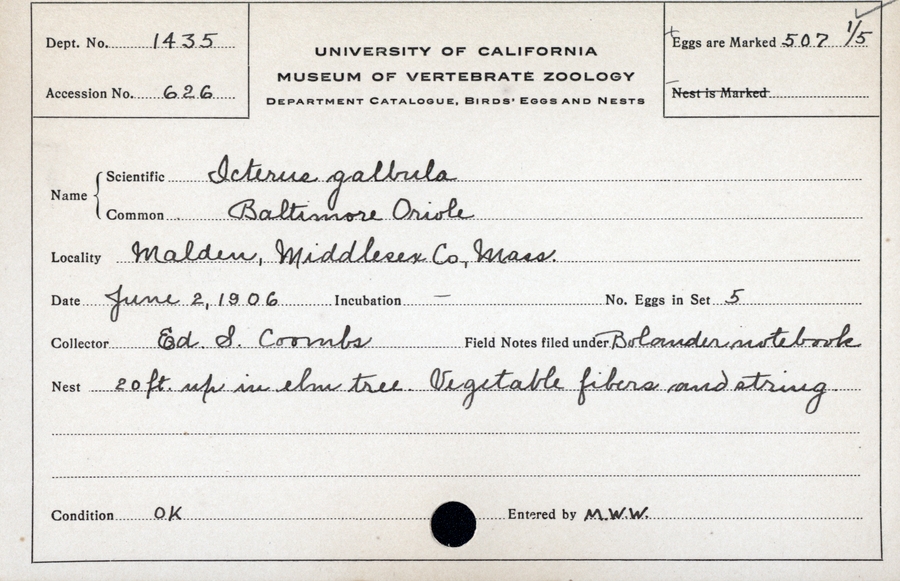 Dept. No. 1435
Accession No. 626
UNIVERSITY OF CALIFORNIA
MUSEUM OF VERTEBRATE ZOOLOGY
DEPARTMENT CATALOGUE, BIRDS' EGGS AND NESTS
Eggs are Marked 507 1/5
Nest is Marked
Name
Scientific Icterus galbula
Common Baltimore Oriole
Locality Malden, Middlesex Co, Mass.
Date June 2, 1906 Incubation — No. Eggs in Set 5
Collector Ed. S. Coombs Field Notes filed under Bolander notebook
Nest 20 ft. up in elm tree. Vegetable fibers and string.
Condition OK Entered by M.W.W.